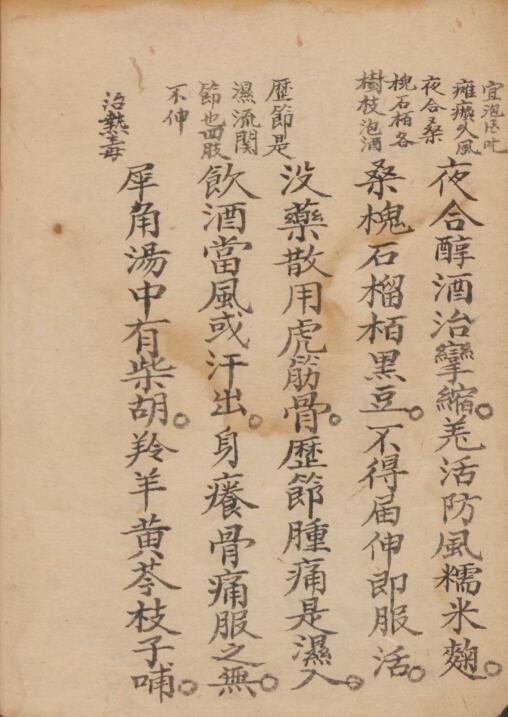 宜泡
癱瘓久風
夜合桑
槐石栢各
樹枝泡酒
夜合醇酒治攣縮。羗活防風糯米麴。
桑槐石榴栢黒豆。不得届伸即服活。
歷節是
濕流関
節也四肢
不伸
没藥散用虎筋骨。歷節腫痛是濕入。
飲酒當風或汗出。身癢骨痛服之無。
治熱毒
犀角湯中有柴胡。羚羊黄芩枝子哺。